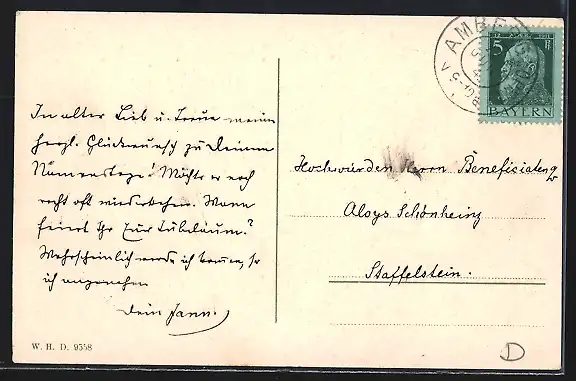 In alter Lieb u. Treue meine
herzl. Glückwunsch zu Deinem
Namenstage! Möchte er noch
recht oft wiederkehren. Wann
feiert Ihr Zur Jubiläum?
Wahrscheinlich werde ich kommen, so
ich
Dein
W. H. D. 9558
AMBERG
5
12 1911
Pf
BAYERN
Hochwürden Herrn Beneficiaten
Aloys Schönheinz
Staffelstein.
D